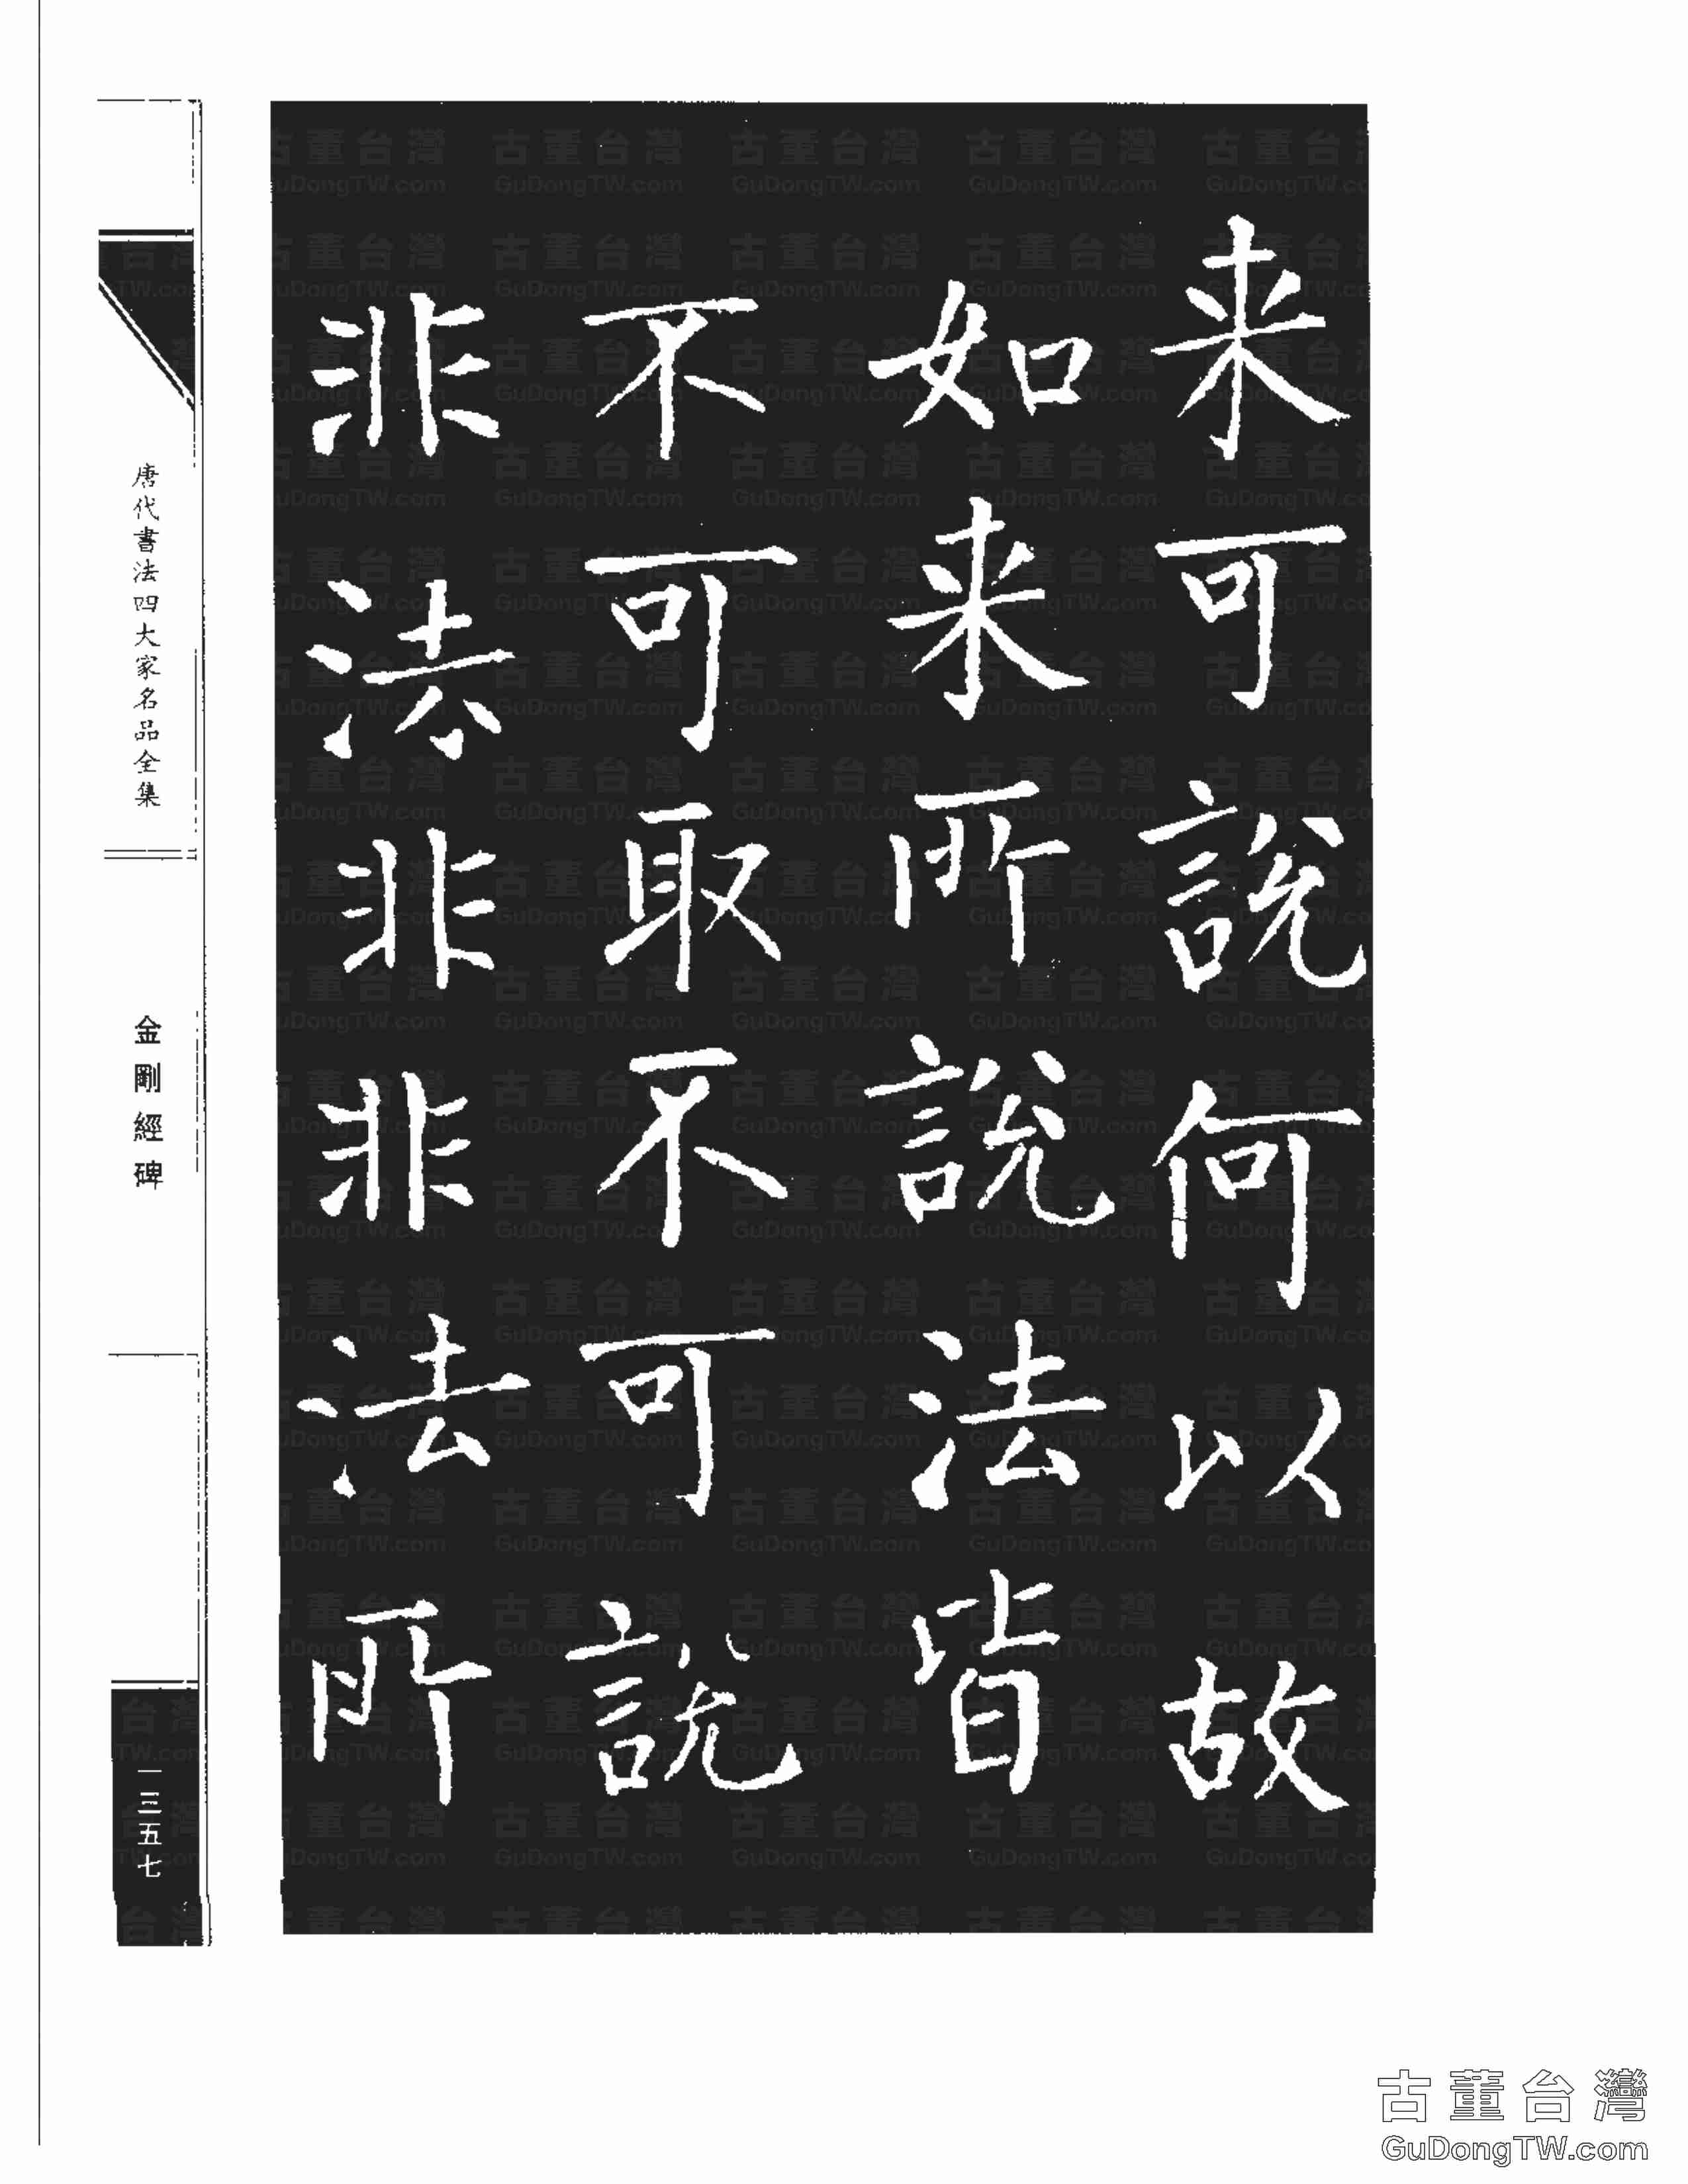 来可說何以故
如来所說法皆
不可取不可說
非法非非法所
唐代書法四大家名品全集
金剛經碑
一三五七
古董台灣
GuDongTW.com